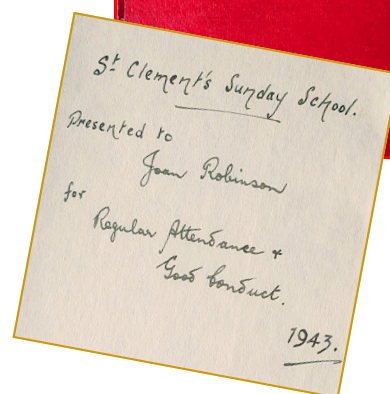 St Clement's Sunday School.
Presented to
Joan Robinson
for
Regular Attendance +
Good Conduct.
1943.